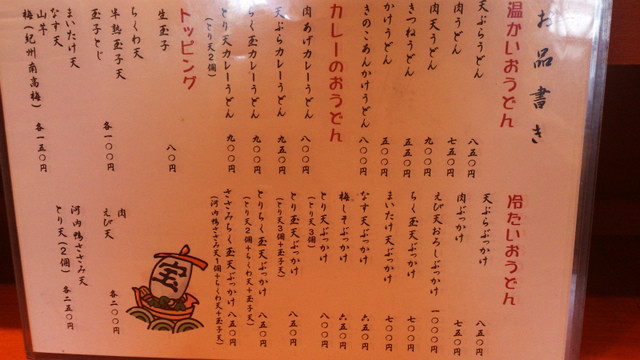 お品書き
温かいおうどん
天ぷらうどん 八五〇円
肉うどん 七五〇円
肉天うどん 九〇〇円
きつねうどん
かけうどん 五〇〇円
きのこあんかけうどん 八〇〇円
カレーのおうどん
肉あげカレーうどん 八〇〇円
天ぷらカレーうどん 九五〇円
ちく玉カレーうどん 九〇〇円
とり天カレーうどん 九〇〇円
(とり天2個)
トッピング
生玉子 八〇円
ちくわ天
半熟玉子天
玉子とじ 各一〇〇円
まいたけ天
なす天
山芋
梅(紀州南高梅) 各一五〇円
肉
えび天 各二〇〇円
河内鴨ささみ天
とり天(2個) 各二五〇円
冷たいおうどん
天ぷらぶっかけ 八五〇円
肉ぶっかけ 七五〇円
えび天おろしぶっかけ 一〇〇〇円
ちく玉天ぶっかけ 七五〇円
まいたけ天ぶっかけ 六五〇円
なす天ぶっかけ 六五〇円
梅しそぶっかけ 六五〇円
とり天ぶっかけ 八〇〇円
(とり天3個)
とり玉天ぶっかけ 八五〇円
(とり天3個+玉子天)
とりちく玉天ぶっかけ 八五〇円
(とり天2個+ちくわ天+玉子天)
ささみちく玉天ぶっかけ 八五〇円
(河内鴨ささみ天1個+ちくわ天+玉子天)
宝